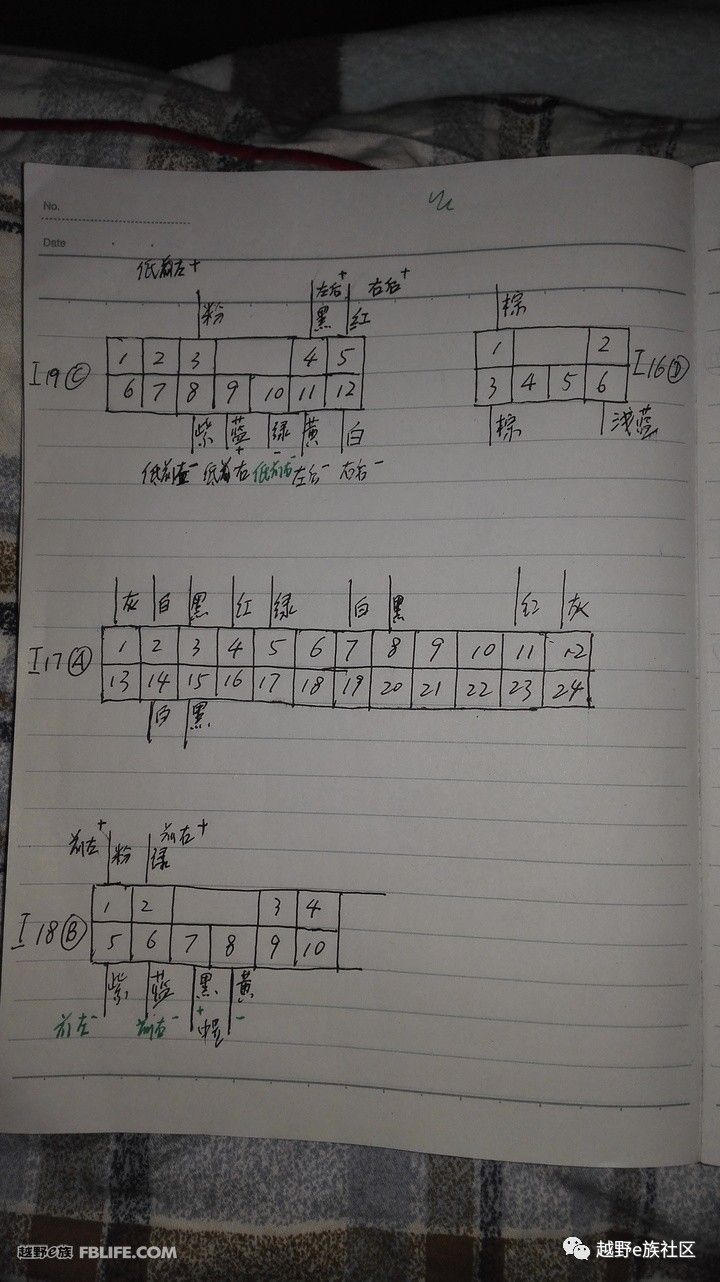 No.
Date
低前左+
粉 左后+ 黑 右后+ 红
棕
1 2 3 4 5
I19Ⓒ 6 7 8 9 10 11 12
1 2
I16Ⓓ 3 4 5 6
紫 蓝 绿 黄 白
棕 浅蓝
低前左- 低前右+ 低前右- 左后- 右后-
灰 白 黑 红 绿 白 黑 红 灰
1 2 3 4 5 6 7 8 9 10 11 12
I17Ⓐ 13 14 15 16 17 18 19 20 21 22 23 24
白 黑
前左+ 粉 前右+ 绿
1 2 3 4
I18Ⓑ 5 6 7 8 9 10
紫 蓝 黑 黄
前左- 前右- + 中置 -
越野e族 FBLIFE.COM
越野e族社区